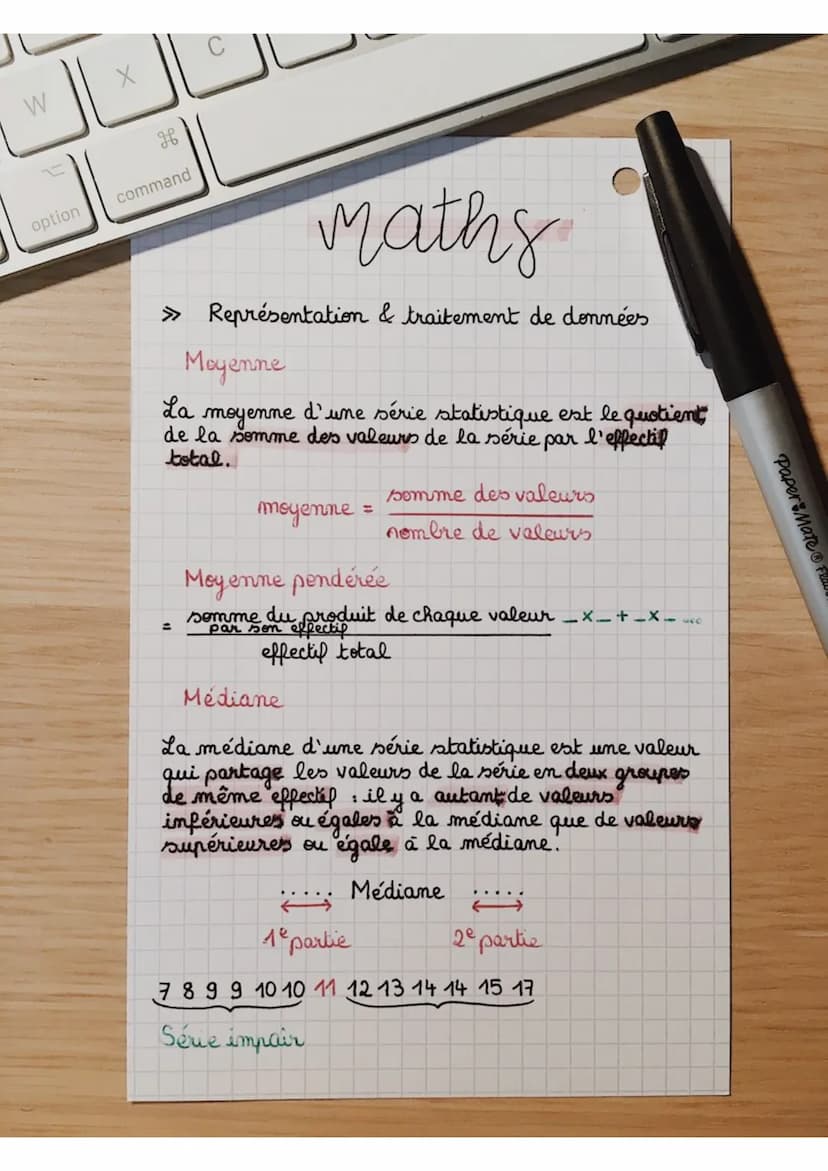 W X C
⌥ ⌘
option command
maths
>> Représentation & traitement de données
Moyenne
La moyenne d'une série statistique est le quotient
de la somme des valeurs de la série par l'effectif
total.
moyenne = somme des valeurs
nombre de valeurs
Moyenne pondérée
= somme du produit de chaque valeur _x_+_x_ ...
par son effectif
effectif total
Médiane
La médiane d'une série statistique est une valeur
qui partage les valeurs de la série en deux groupes
de même effectif : il y a autant de valeurs
inférieures ou égales à la médiane que de valeurs
supérieures ou égale à la médiane.
..... Médiane .....
1e partie 2e partie
7 8 9 9 10 10 11 12 13 14 14 15 17
Série impair
Paper Mate®